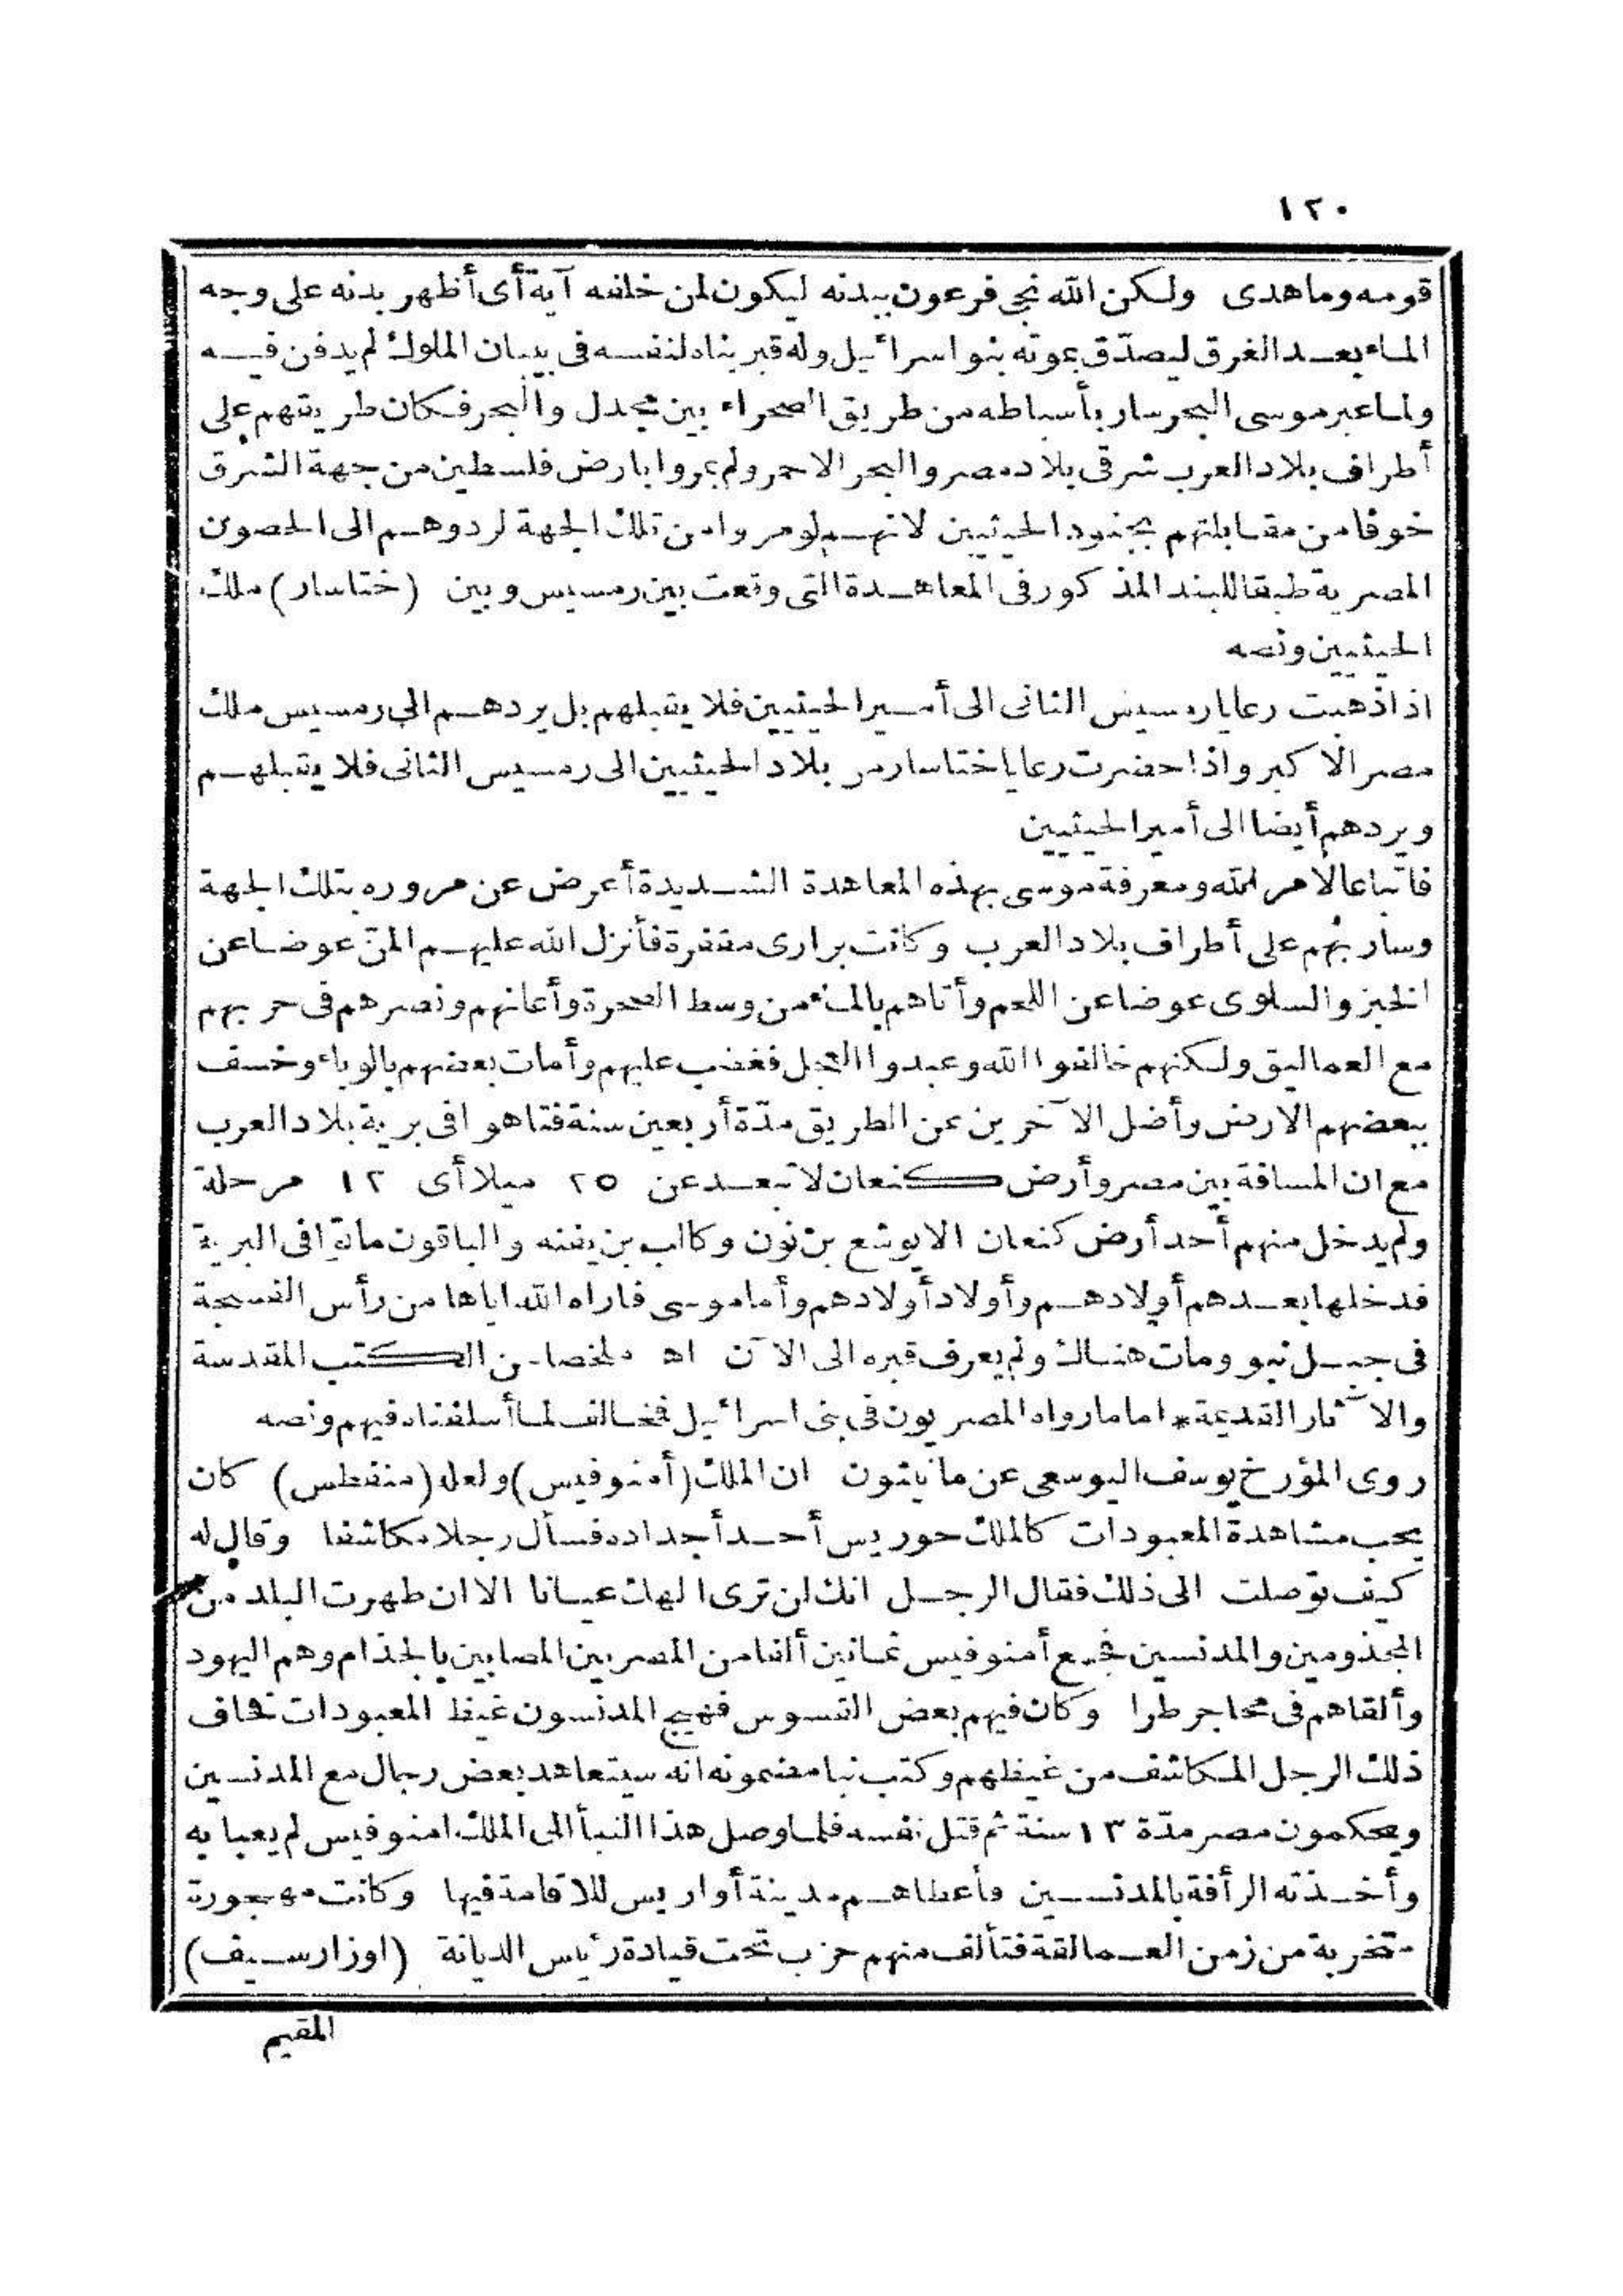 ١٢٠
قومه وما هدى ولكن الله نجى فرعون ببدنه ليكون لمن خلفه آية أى أظهر بدنه على وجه
الماء بعد الغرق ليصدّق بموته بنو اسرائيل وله قبر بناه لنفسه فى بيبان الملوك لم يدفن فيه
ولما عبر موسى البحر سار بأسباطه من طريق الصحراء بين مجدل والبحر فكان طريقهم على
أطراف بلاد العرب شرقى بلاد مصر والبحر الاحمر ولم يمروا بارض فلسطين من جهة الشرق
خوفا من مقابلتهم بجنود الحيثيين لانهم لو مروا من تلك الجهة لردوهم الى الحصون
المصرية طبقا للبند المذكور فى المعاهدة التى وقعت بين رمسيس وبين (ختاسار) ملك
الحيثيين ونصه
اذا ذهبت رعايا رمسيس الثانى الى أمير الحيثيين فلا يقبلهم بل يردهم الى رمسيس ملك
مصر الاكبر واذا حضرت رعايا ختاسار من بلاد الحيثيين الى رمسيس الثانى فلا يقبلهم
ويردهم أيضا الى أمير الحيثيين
فاتباعا لامر الله ومعرفة موسى بهذه المعاهدة الشديدة أعرض عن مروره بتلك الجهة
وسار بهم على أطراف بلاد العرب وكانت برارى مقفرة فأنزل الله عليهم المنّ عوضا عن
الخبز والسلوى عوضا عن اللحم وأتاهم بالماء من وسط الصخرة وأعانهم ونصرهم فى حربهم
مع العماليق ولكنهم خالفوا الله وعبدوا العجل فغضب عليهم وأمات بعضهم بالوباء وخسف
ببعضهم الارض وأضل الآخرين عن الطريق مدّة أربعين سنة فتاهوا فى برية بلاد العرب
مع ان المسافة بين مصر وأرض كنعان لا تبعد عن ٢٥ ميلا أى ١٢ مرحلة
ولم يدخل منهم أحد أرض كنعان الا يوشع بن نون وكالب بن يفنه والباقون ماتوا فى البرية
فدخلها بعدهم أولادهم وأولاد أولادهم وأما موسى فاراه الله اياها من رأس الفسجة
فى جبل نيبو ومات هناك ولم يعرف قبره الى الآن اه ملخصا من الكتب المقدسة
والآثار القديمة * اما ما رواه المصريون فى بنى اسرائيل فمخالف لما أسلفناه فيهم ونصه
روى المؤرخ يوسف اليوسعى عن مانيتون ان الملك (أمنوفيس) ولعله (منفطس) كان
يحب مشاهدة المعبودات كالملك حوريس أحد أجداده فسأل رجلا مكاشفا وقال له
كيف توصلت الى ذلك فقال الرجل انك لن ترى الهك عيانا الا ان طهرت البلد من
المجذومين والمدنسين فجمع أمنوفيس ثمانين ألفا من المصريين المصابين بالجذام وهم اليهود
وألقاهم فى محاجر طرا وكان فيهم بعض القسوس فهيج المدنسون غيظ المعبودات فخاف
ذلك الرجل المكاشف من غيظهم وكتب نبا مضمونه انه سيتعاهد بعض رجال مع المدنسين
ويحكمون مصر مدّة ١٣ سنة ثم قتل نفسه فلما وصل هذا النبأ الى الملك امنوفيس لم يعبا به
وأخذته الرأفة بالمدنسين فأعطاهم مدينة أواريس للاقامة فيها وكانت مهجورة
متخربة من زمن العمالقة فتألف منهم حزب تحت قيادة رئيس الديانة (اوزارسيف)
المقيم